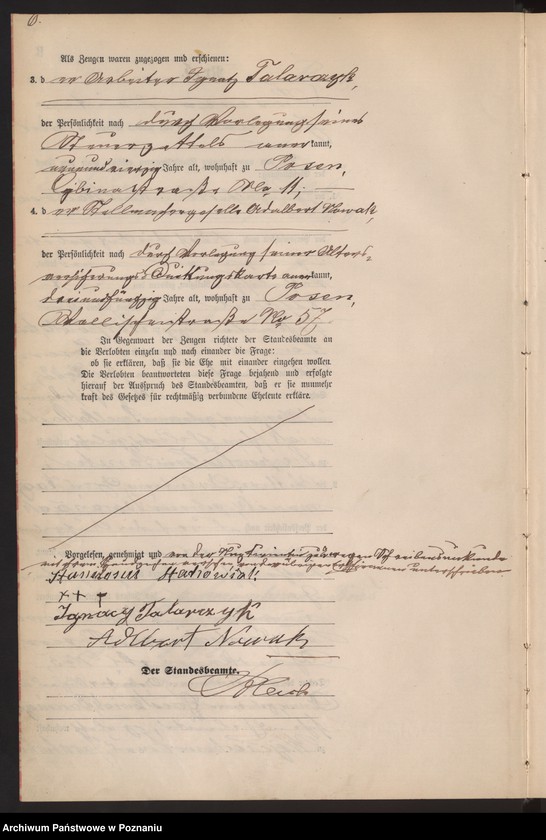 6.
Als Zeugen waren zugezogen und erschienen:
3. der Arbeiter Ignatz Talarczyk,
der Persönlichkeit nach durch Vorlegung seines
Steuerzettels anerkannt,
neunundvierzig Jahre alt, wohnhaft zu Posen,
Cybinastraße No 11;
4. der Stellmachergeselle Adalbert Nowak,
der Persönlichkeit nach durch Vorlegung seiner Alters-
versicherungs Quittungskarte anerkannt,
dreiundfünfzig Jahre alt, wohnhaft zu Posen,
Wallischeistraße No 57.
In Gegenwart der Zeugen richtete der Standesbeamte an
die Verlobten einzeln und nach einander die Frage:
ob sie erklären, daß sie die Ehe mit einander eingehen wollen.
Die Verlobten beantworteten diese Frage bejahend und erfolgte
hierauf der Ausspruch des Standesbeamten, daß er sie nunmehr
kraft des Gesetzes für rechtmäßig verbundene Eheleute erkläre.
Vorgelesen, genehmigt und von der wegen Schreibensunkunde
mit ihrem Handzeichen versehen und unterschrieben
+++
Ignacy Talarczyk
Adlbert Nowak
Der Standesbeamte.
Archiwum Państwowe w Poznaniu